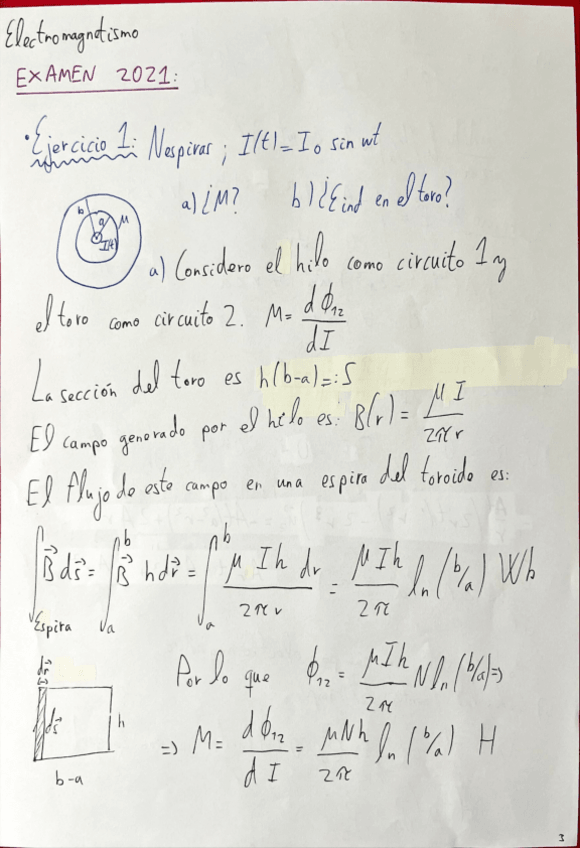 Electromagnetismo
EXAMEN 2021:
·Ejercicio 1: N espiras ; I(t) = I₀ sin wt
b a μ I(t)
a) ¿M? b) ¿Ɛind en el toro?
a) Considero el hilo como circuito 1 y
el toro como circuito 2. M = dϕ₁₂/dI
La sección del toro es h(b-a)=:S
El campo generado por el hilo es: B(r) = μI/2πr
El flujo de este campo en una espira del toroide es:
∫Espira B⃗ds⃗ = ∫ₐᵇ B⃗ hdr⃗ = ∫ₐᵇ μIh dr/2πr = μIh/2π ln(b/a) Wb
dr⃗
ds⃗ h
b-a
Por lo que ϕ₁₂ = μIh/2π N ln(b/a) =>
=> M = dϕ₁₂/dI = μNh/2π ln(b/a) H
3